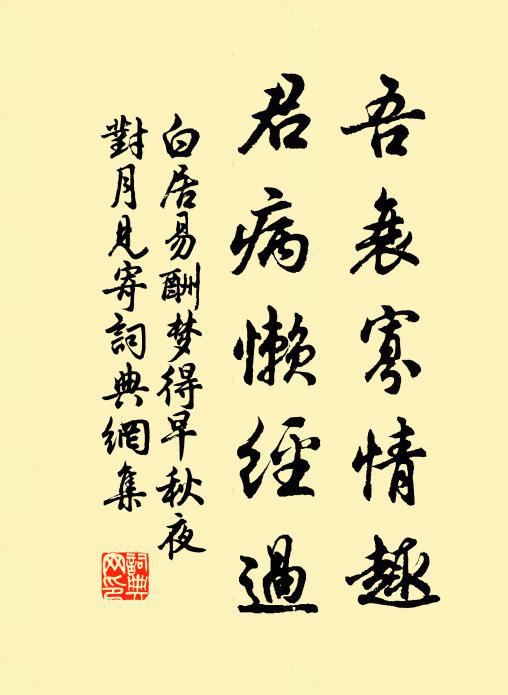 吾衰寡情趣
君病懒經過
白居易酬梦得早秋夜
對月見寄詞典網集
詞典網印